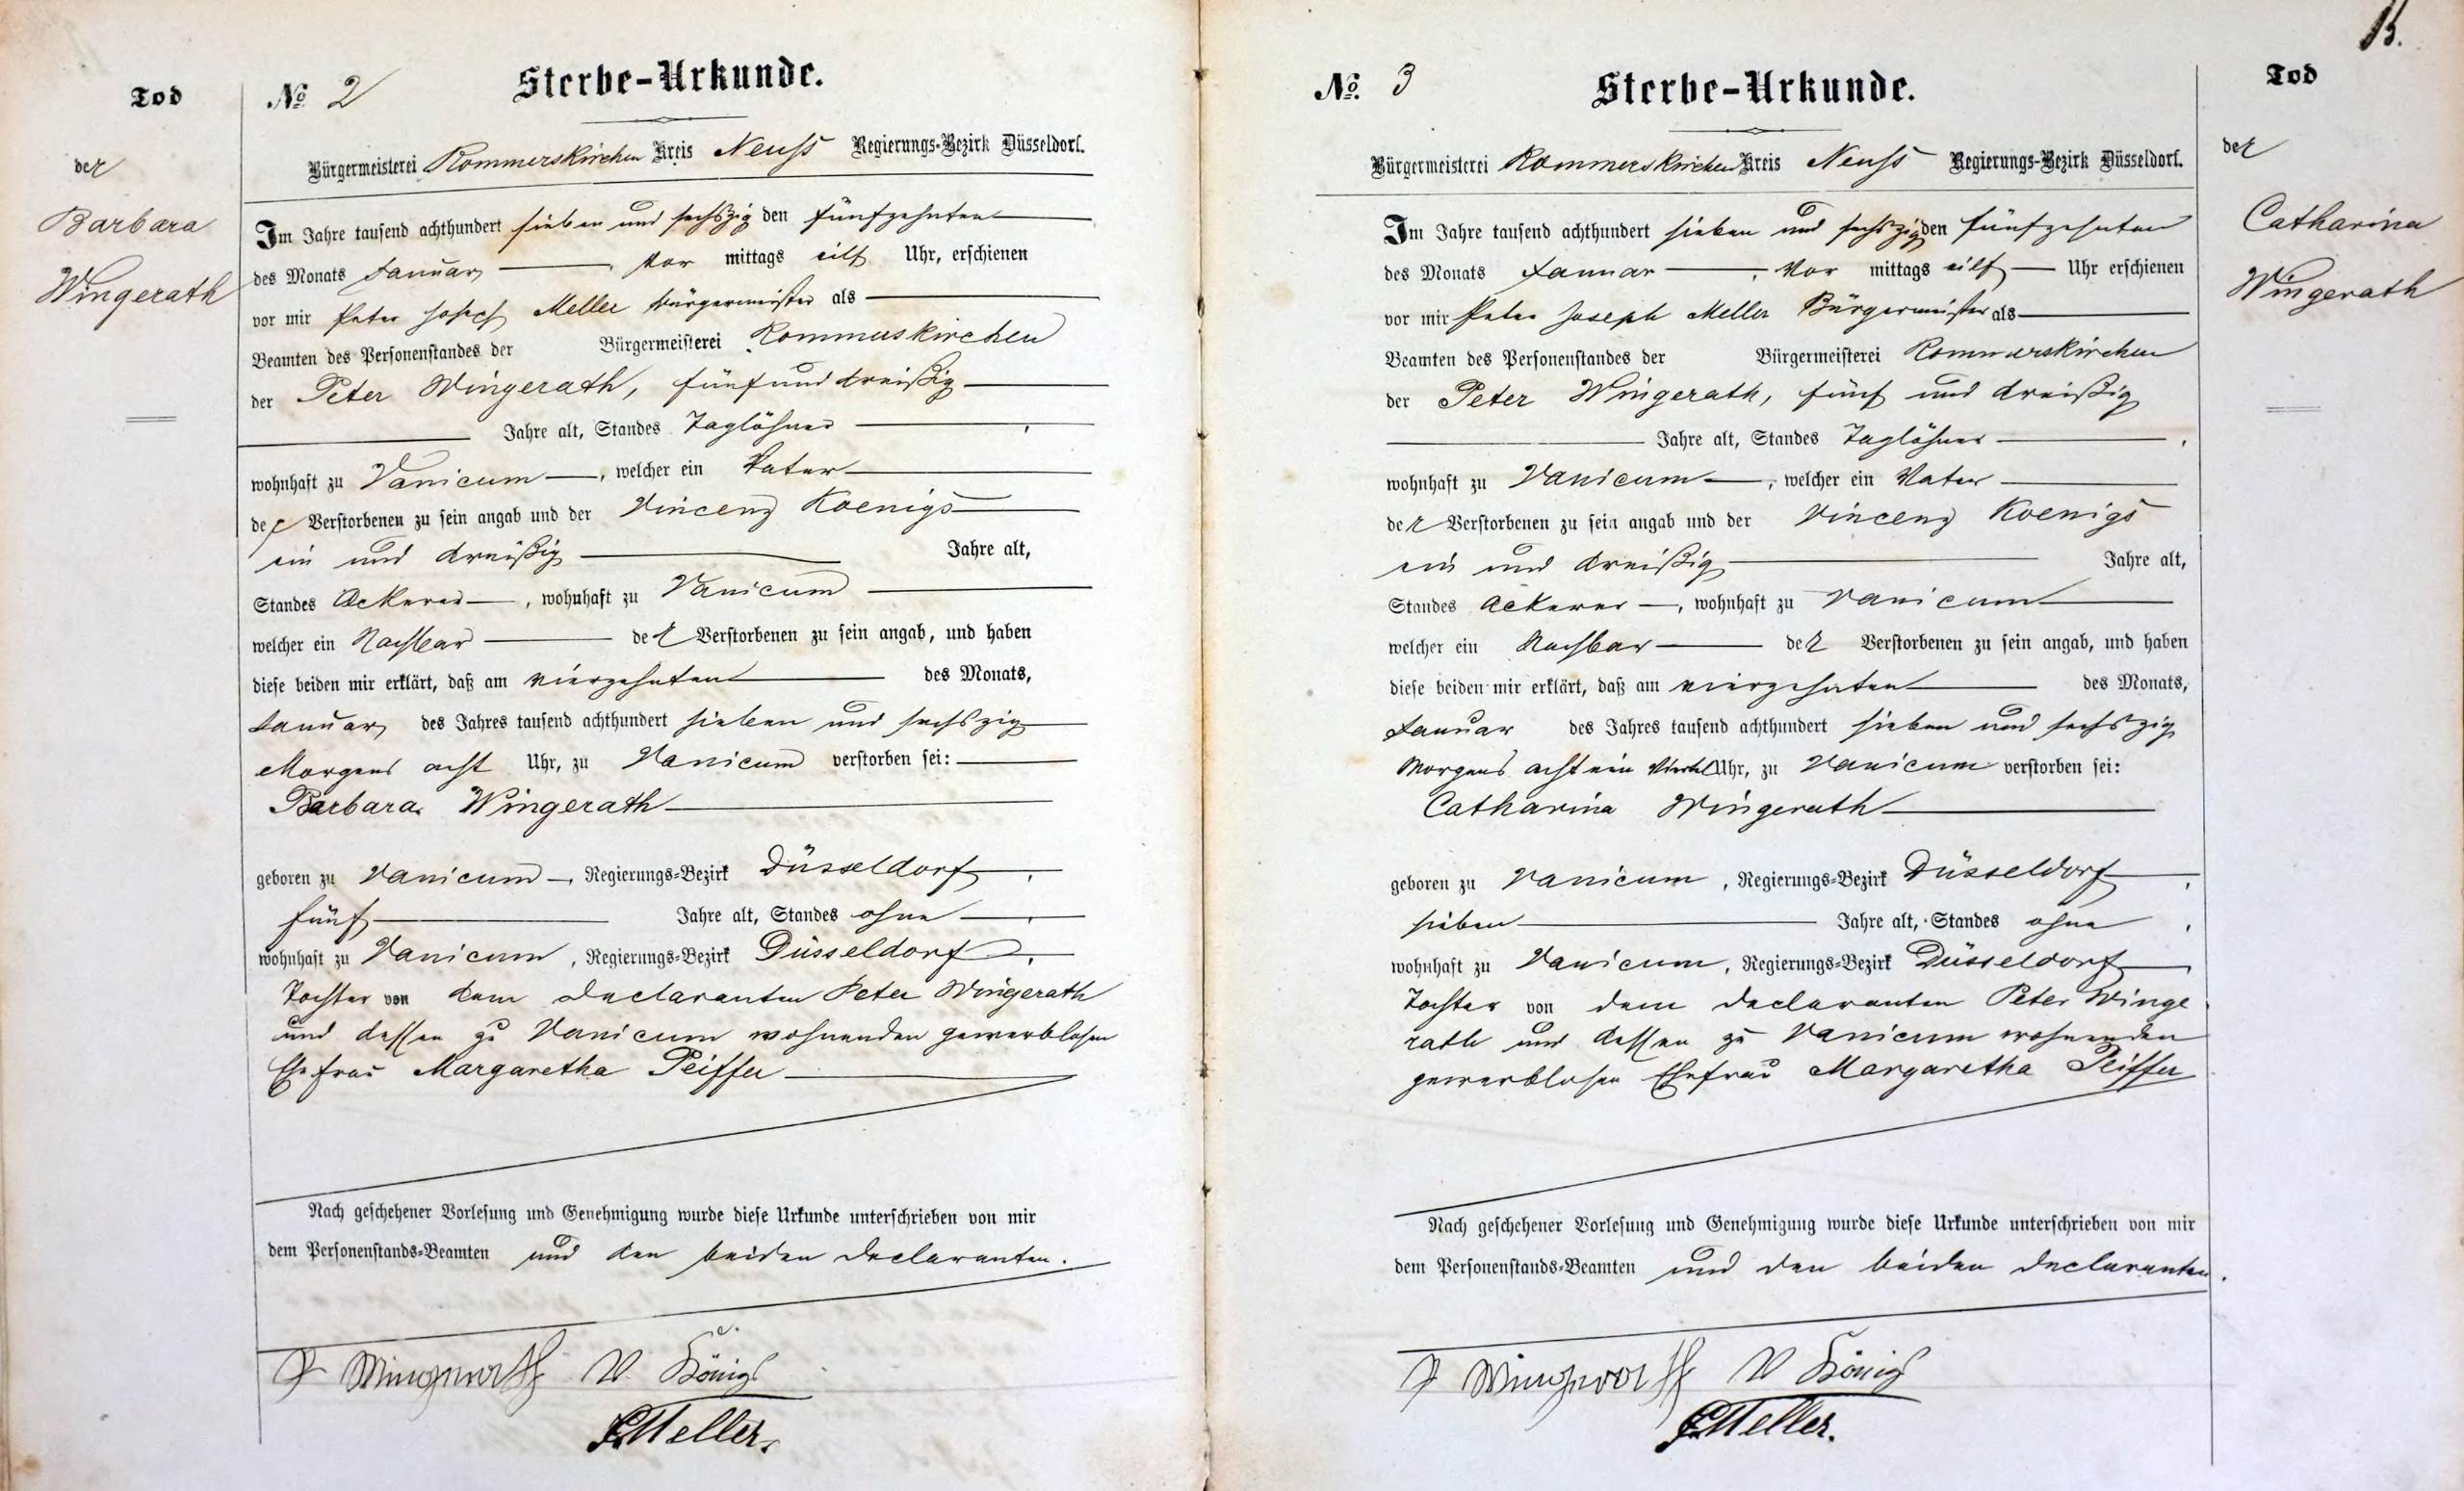 Tod
der
Barbara
Wingerath
№ 2
Sterbe-Urkunde.
Bürgermeisterei Rommerskirchen Kreis Neuss Regierungs-Bezirk Düsseldorf.
Im Jahre tausend achthundert sieben und sechszig den fünfzehnten
des Monats Januar, vor mittags eilf Uhr, erschienen
vor mir Peter Joseph Meller Bürgermeister als
Beamten des Personenstandes der Bürgermeisterei Rommerskirchen
der Peter Wingerath, fünf und dreißig
Jahre alt, Standes Taglöhner,
wohnhaft zu Vanicum, welcher ein Vater
der Verstorbenen zu sein angab und der Vincenz Koenigs
ein und dreißig Jahre alt,
Standes Ackerer, wohnhaft zu Vanicum
welcher ein Nachbar der Verstorbenen zu sein angab, und haben
diese beiden mir erklärt, daß am vierzehnten des Monats,
Januar des Jahres tausend achthundert sieben und sechszig
Morgens acht Uhr, zu Vanicum verstorben sei:
Barbara Wingerath
geboren zu Vanicum, Regierungs-Bezirk Düsseldorf,
fünf Jahre alt, Standes ohne,
wohnhaft zu Vanicum, Regierungs-Bezirk Düsseldorf,
Tochter von dem Declaranten Peter Wingerath
und dessen zu Vanicum wohnenden gewerblosen
Ehefrau Margaretha Peiffer
Nach geschehener Vorlesung und Genehmigung wurde diese Urkunde unterschrieben von mir
dem Personenstands-Beamten und den beiden Declaranten.
P Wingerath V. Königs
P. Meller.
15.
Tod
der
Catharina
Wingerath
№. 3
Sterbe-Urkunde.
Bürgermeisterei Rommerskirchen Kreis Neuss Regierungs-Bezirk Düsseldorf.
Im Jahre tausend achthundert sieben und sechszig den fünfzehnten
des Monats Januar, Vor mittags eilf Uhr erschienen
vor mir Peter Joseph Meller Bürgermeister als
Beamten des Personenstandes der Bürgermeisterei Rommerskirchen
der Peter Wingerath, fünf und dreißig
Jahre alt, Standes Taglöhner,
wohnhaft zu Vanicum, welcher ein Vater
der Verstorbenen zu sein angab und der Vincenz Koenigs
ein und dreißig Jahre alt,
Standes Ackerer, wohnhaft zu Vanicum
welcher ein Nachbar der Verstorbenen zu sein angab, und haben
diese beiden mir erklärt, daß am vierzehnten des Monats,
Januar des Jahres tausend achthundert sieben und sechszig
Morgens acht ein Viertel Uhr, zu Vanicum verstorben sei:
Catharina Wingerath
geboren zu Vanicum, Regierungs-Bezirk Düsseldorf,
sieben Jahre alt, Standes ohne,
wohnhaft zu Vanicum, Regierungs-Bezirk Düsseldorf,
Tochter von dem Declaranten Peter Winge
rath und dessen zu Vanicum wohnenden
gewerblosen Ehefrau Margaretha Peiffer
Nach geschehener Vorlesung und Genehmigung wurde diese Urkunde unterschrieben von mir
dem Personenstands-Beamten und den beiden Declaranten.
P Wingerath V Königs
P. Meller.